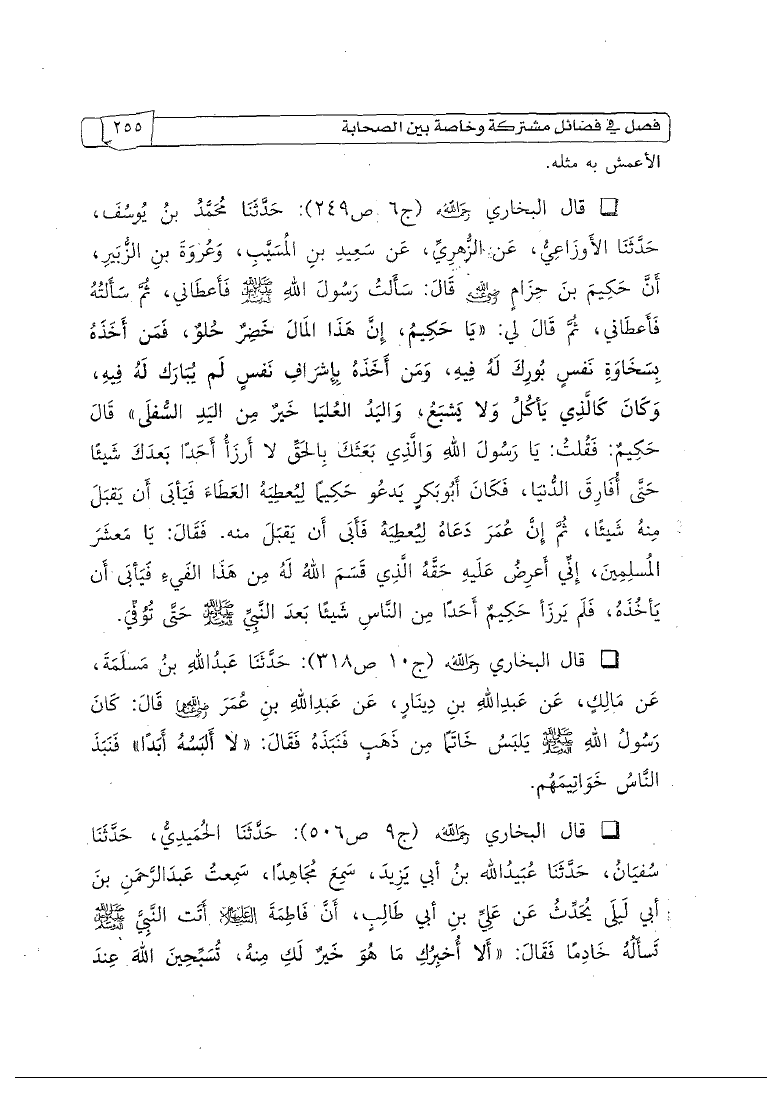 فصل في فضائل مشتركة وخاصة بين الصحابة ٢٥٥
الأعمش به مثله.
❑ قال البخاري رحمه الله (ج٦ ص٢٤٩): حَدَّثَنَا مُحَمَّدُ بنُ يُوسُفَ،
حَدَّثَنَا الأَوزَاعِيُّ، عَن الزُّهرِيِّ، عَن سَعِيدِ بنِ المُسَيَّبِ، وَعُروَةَ بنِ الزُّبَيرِ،
أَنَّ حَكِيمَ بنَ حِزَامٍ رضي الله عنه قَالَ: سَأَلتُ رَسُولَ اللهِ ﷺ فَأَعطَاني، ثُمَّ سَأَلتُهُ
فَأَعطَاني، ثُمَّ قَالَ لي: «يَا حَكِيمُ، إِنَّ هَذَا المَالَ خَضِرٌ حُلوٌ، فَمَن أَخَذَهُ
بِسَخَاوَةِ نَفسٍ بُورِكَ لَهُ فِيهِ، وَمَن أَخَذَهُ بِإِشرَافِ نَفسٍ لَم يُبَارَك لَهُ فِيهِ،
وَكَانَ كَالَّذِي يَأكُلُ وَلا يَشبَعُ، وَاليَدُ العُليَا خَيرٌ مِن اليَدِ السُّفلَى» قَالَ
حَكِيمٌ: فَقُلتُ: يَا رَسُولَ اللهِ وَالَّذِي بَعَثَكَ بِالحَقِّ لا أَرزَأُ أَحَدًا بَعدَكَ شَيئًا
حَتَّى أُفَارِقَ الدُّنيَا، فَكَانَ أَبُوبَكرٍ يَدعُو حَكِيمًا لِيُعطِيَهُ العَطَاءَ فَيَأبَى أَن يَقبَلَ
مِنهُ شَيئًا، ثُمَّ إِنَّ عُمَرَ دَعَاهُ لِيُعطِيَهُ فَأَبَى أَن يَقبَلَ منه. فَقَالَ: يَا مَعشَرَ
المُسلِمِينَ، إِنِّي أَعرِضُ عَلَيهِ حَقَّهُ الَّذِي قَسَمَ اللهُ لَهُ مِن هَذَا الفَيءِ فَيَأبَى أَن
يَأخُذَهُ، فَلَم يَرزَأ حَكِيمٌ أَحَدًا مِن النَّاسِ شَيئًا بَعدَ النَّبِيِّ ﷺ حَتَّى تُوُفِّيَ.
❑ قال البخاري رحمه الله (ج١٠ ص٣١٨): حَدَّثَنَا عَبدُاللهِ بنُ مَسلَمَةَ،
عَن مَالِكٍ، عَن عَبدِاللهِ بنِ دِينَارٍ، عَن عَبدِاللهِ بنِ عُمَرَ رضي الله عنهما قَالَ: كَانَ
رَسُولُ اللهِ ﷺ يَلبَسُ خَاتَمًا مِن ذَهَبٍ فَنَبَذَهُ فَقَالَ: «لا أَلبَسُهُ أَبَدًا» فَنَبَذَ
النَّاسُ خَوَاتِيمَهُم.
❑ قال البخاري رحمه الله (ج٩ ص٥٠٦): حَدَّثَنَا الحُمَيدِيُّ، حَدَّثَنَا
سُفيَانُ، حَدَّثَنَا عُبَيدُالله بنُ أَبي يَزِيدَ، سَمِعَ مُجَاهِدًا، سَمِعتُ عَبدَالرَّحمَنِ بنَ
أَبي لَيلَى يُحَدِّثُ عَن عَلِيِّ بنِ أَبي طَالِبٍ، أَنَّ فَاطِمَةَ عليها السلام أَتَت النَّبِيَّ ﷺ
تَسأَلُهُ خَادِمًا فَقَالَ: «أَلا أُخبِرُكِ مَا هُوَ خَيرٌ لَكِ مِنهُ، تُسَبِّحِينَ اللهَ عِندَ